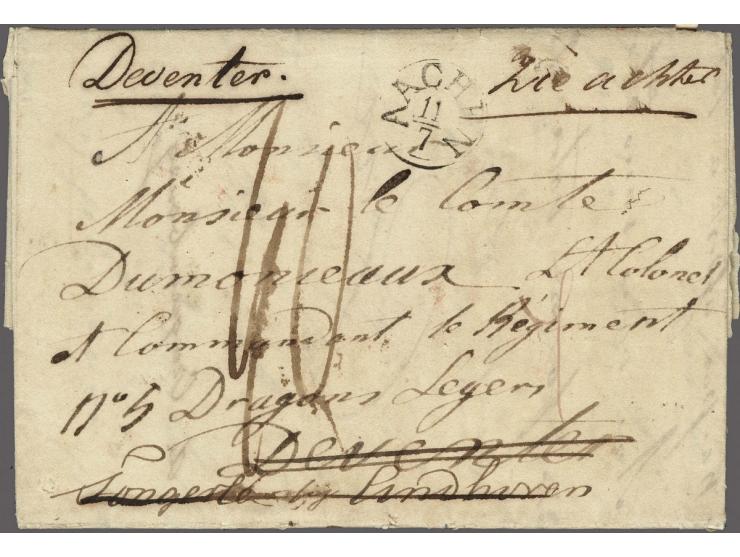 Deventer.
AACHEN
11/7
Zie achter
A Monsieur
Monsieur le Comte
Dumonceaux Lt Colonel
et Commandant le Régiment
No 5 Dragons Legers
Deventer
Tongerlé by Eindhoven